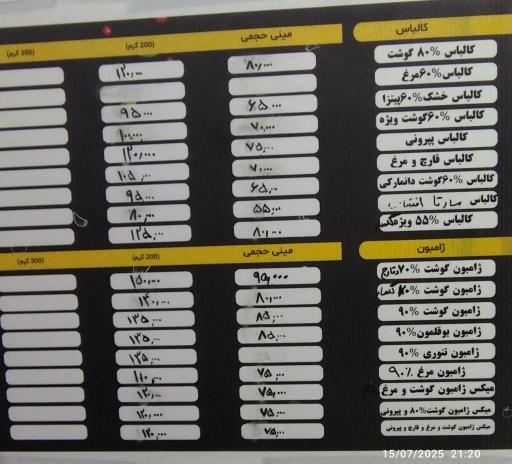 کالباس مینی حجمی (200 گرم) (300 گرم)
کالباس ۸۰% گوشت ۸۰,۰۰۰ ۱۲۰,۰۰۰
کالباس ۶۰%مرغ
کالباس خشک ۶۰%پیتزا ۶۵,۰۰۰ ۹۵,۰۰۰
کالباس ۶۰%گوشت ویژه ۷۰,۰۰۰ ۱۰۰,۰۰۰
کالباس پپرونی ۷۵,۰۰۰ ۱۲۰,۰۰۰
کالباس قارچ و مرغ ۷۰,۰۰۰ ۱۰۵,۰۰۰
کالباس ۶۰%گوشت دانمارکی ۶۵,۰۰۰ ۹۵,۰۰۰
کالباس ۵۵,۰۰۰ ۸۰,۰۰۰
کالباس ۵۵% ویژه ۸۰,۰۰۰ ۱۲۵,۰۰۰
ژامبون مینی حجمی (200 گرم) (300 گرم)
ژامبون گوشت ۷۰% ۹۵,۰۰۰ ۱۵۰,۰۰۰
ژامبون گوشت ۸۰,۰۰۰ ۱۳۰,۰۰۰
ژامبون گوشت ۹۰% ۸۵,۰۰۰ ۱۳۵,۰۰۰
ژامبون بوقلمون ۹۰% ۸۵,۰۰۰ ۱۳۵,۰۰۰
ژامبون تنوری ۹۰% ۱۳۵,۰۰۰
ژامبون مرغ ۹۰% ۷۵,۰۰۰ ۱۱۰,۰۰۰
میکس ژامبون گوشت و مرغ ۷۵,۰۰۰ ۱۲۰,۰۰۰
میکس ژامبون گوشت ۸۰% و پپرونی ۷۵,۰۰۰ ۱۲۰,۰۰۰
میکس ژامبون گوشت و مرغ و قارچ و پپرونی ۷۵,۰۰۰ ۱۲۰,۰۰۰
15/07/2025 21:20